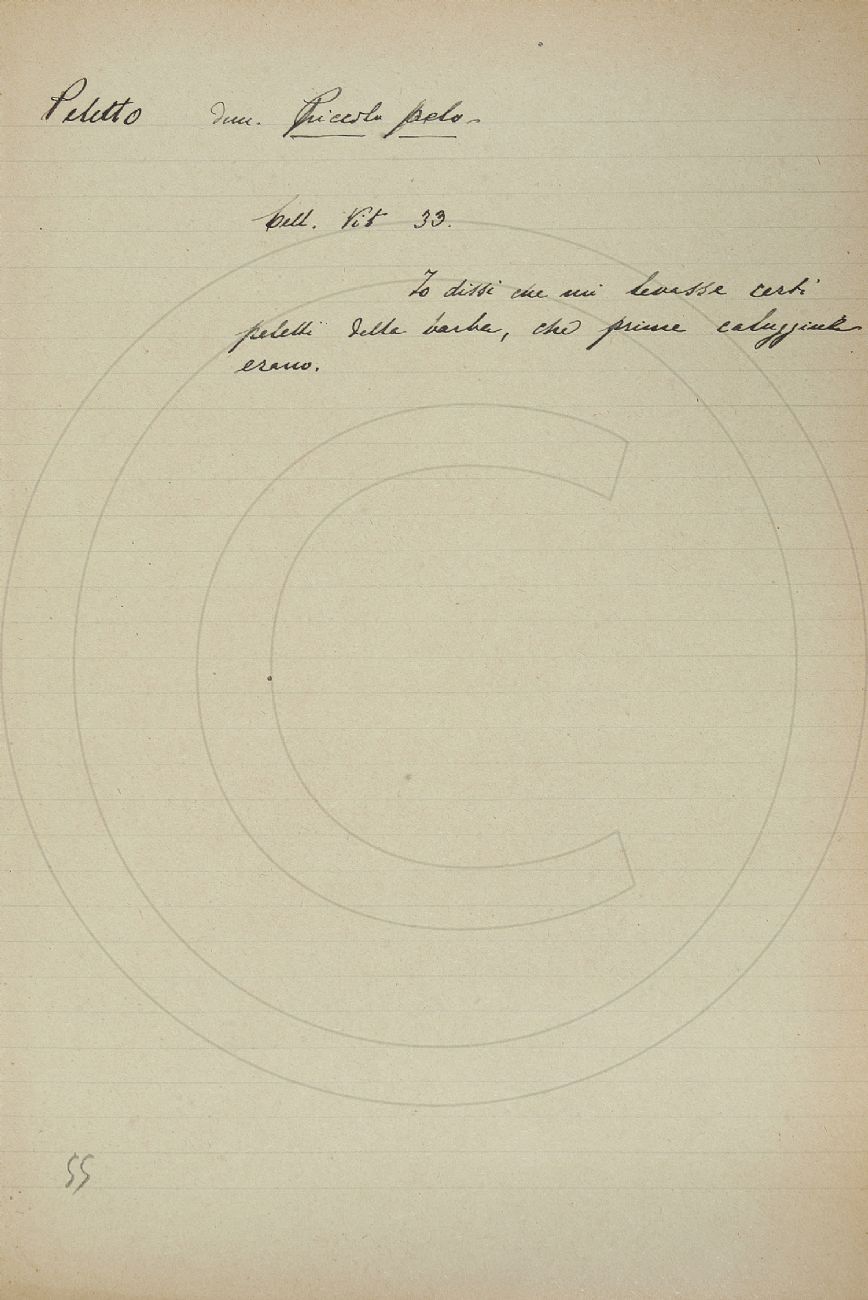 Peletto dim. Piccolo pelo
Cell. Vit 33.
Io dissi che mi levasse certi
peletti della barba, che prime caluggini
erano.
55